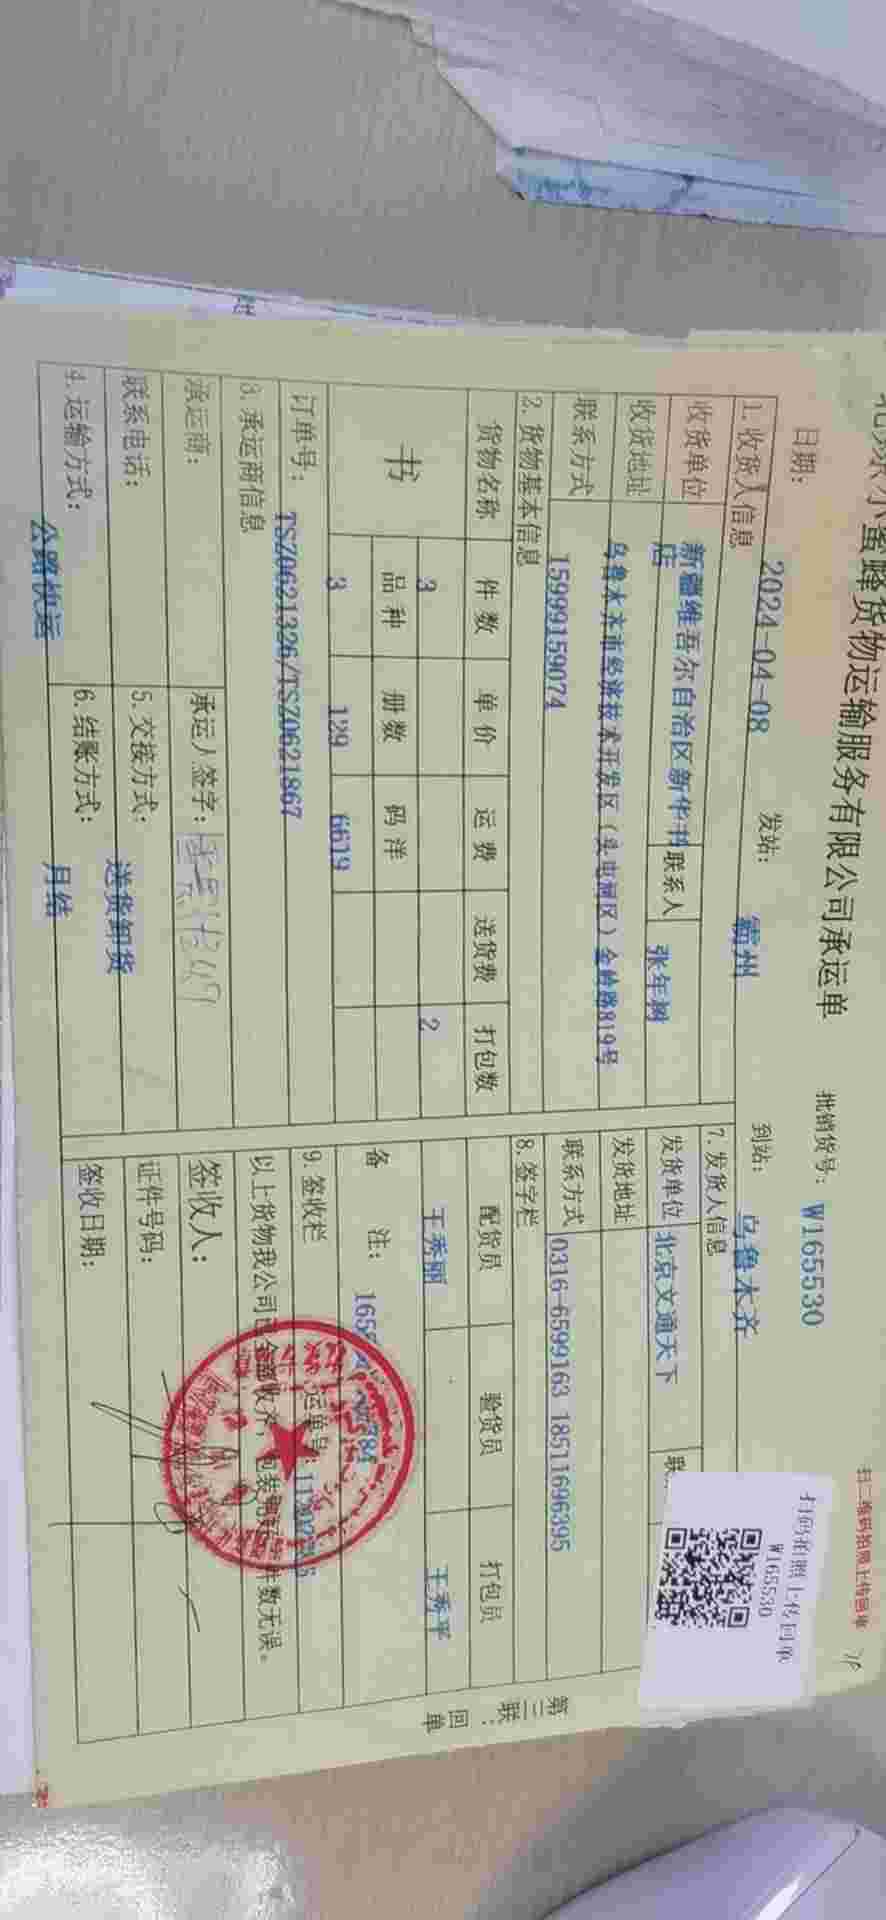 北京小蜜蜂货物运输服务有限公司承运单
扫二维码拍照上传回单
批销货号: W165530
扫码拍照上传回单
W165530
日期: 2024-04-08 发站: 霸州 到站: 乌鲁木齐
1. 收货人信息
收货单位 新疆维吾尔自治区新华书店 联系人 张年树
收货地址 乌鲁木齐市经济技术开发区(头屯河区)金岭路819号
联系方式 15999159074
2. 货物基本信息
货物名称 件数 单价 运费 送货费 打包数
书 3 2
品种 册数 码洋
3 129 6619
订单号: TSZ0621326/TSZ0621867
3. 承运商信息
承运商: 承运人签字:
联系电话: 5. 交接方式: 送货卸货
4. 运输方式: 公路快运 6. 结账方式: 月结
7. 发货人信息
发货单位 北京文通天下 联
发货地址
联系方式 0316-6599163 18511696395
8. 签字栏
配货员 验货员 打包员
王秀丽 王秀平
备注:
9. 签收栏 运单号:
以上货物我公司已全部收齐, 包装完好 件数无误。
签收人:
证件号码:
签收日期:
第三联: 回单